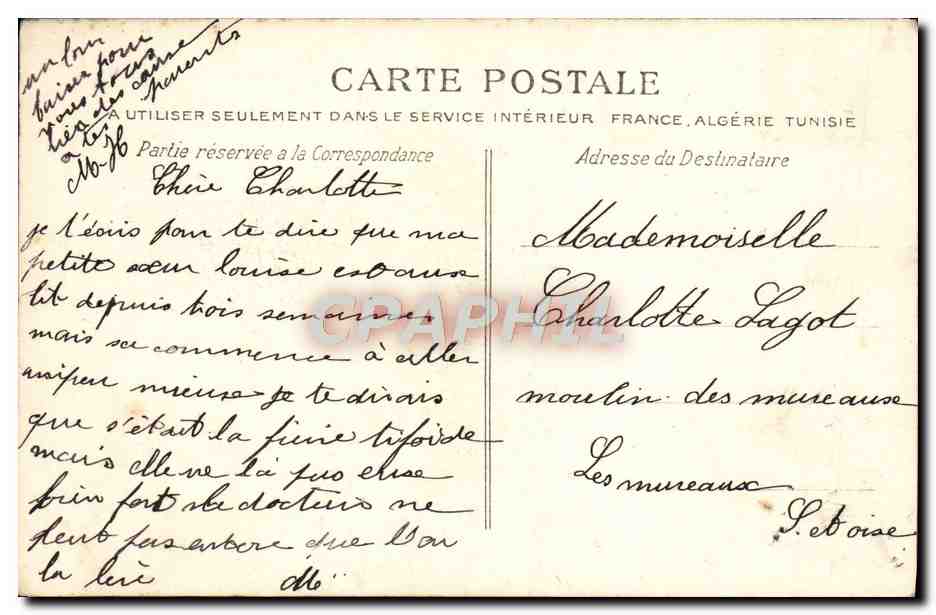 CARTE POSTALE
A UTILISER SEULEMENT DANS LE SERVICE INTÉRIEUR FRANCE, ALGÉRIE TUNISIE
Partie réservée a la Correspondance
Adresse du Destinataire
un bon
baiser pour
vous tous
parents
M-H
Chère Charlotte
je t'écris pour te dire que ma
petite sœur louise est aux
lit depuis trois semaines
mais sa commence à aller
mieuse je te dirais
que s'était la fievre tifoide
mais elle ne la pas euse
bien fort le docteurs ne
peut pas encore que l'on
la leve
Mademoiselle
Charlotte Lagot
moulin des mureaux
Les mureaux
S. et oise
CPAPHIL